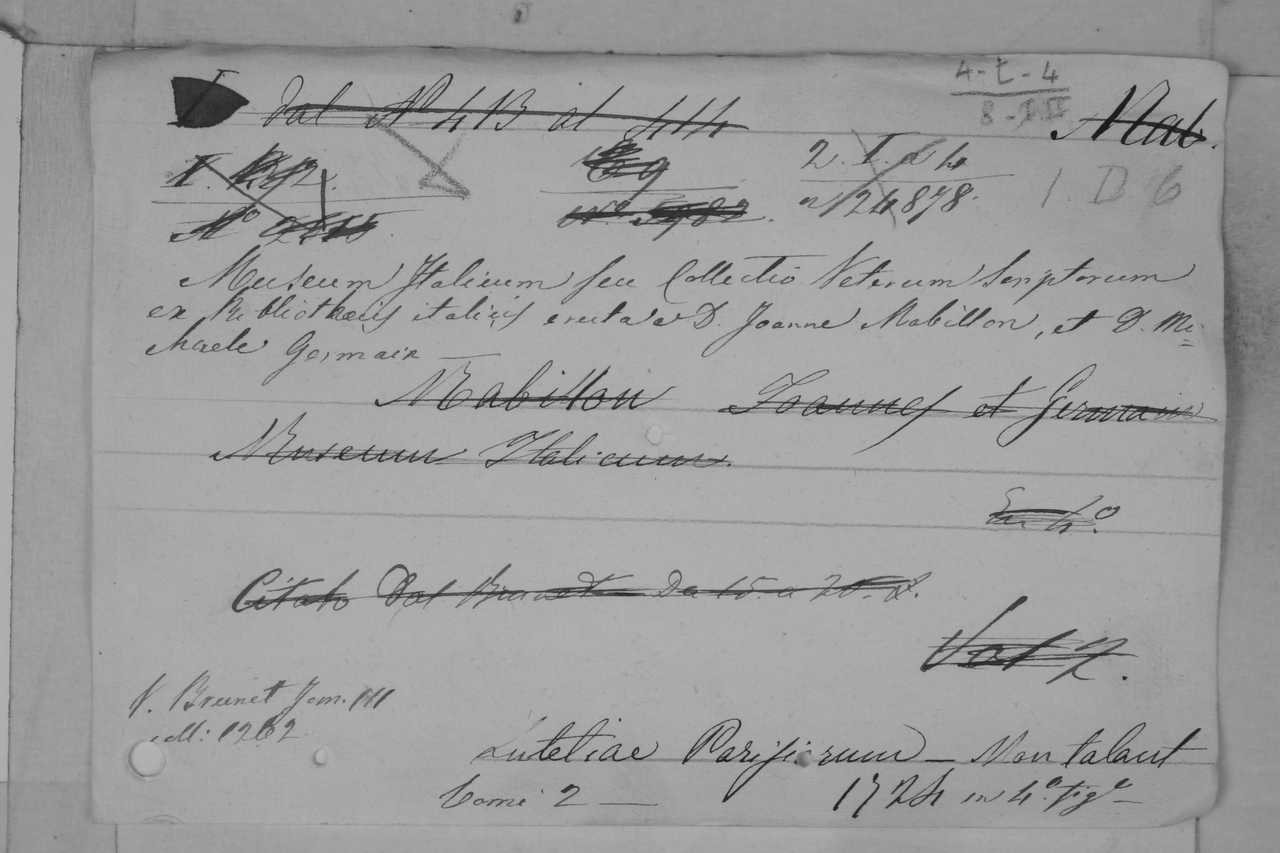 4-t-4
8-
Dal N° 413 al 414
Mab.
I.
N°
N° 5782.
2. I. a 4
n 24878.
1 D 6
Museum Italicum seu Collectio Veterum Scriptorum
ex Bibliothecis italicis eruta a D. Joanne Mabillon, et D. Mi=
chaele Germain
Mabillon Joannes et Germain
Museum Italicum.
In 4°.
Citato Dal Brunet Da 15. a 20. f.
Vol 2.
V. Brunet Tom. III
coll: 1262
Lutetiae Parisiorum — Montalant
tomi 2 — 1724 in 4° fig.e —